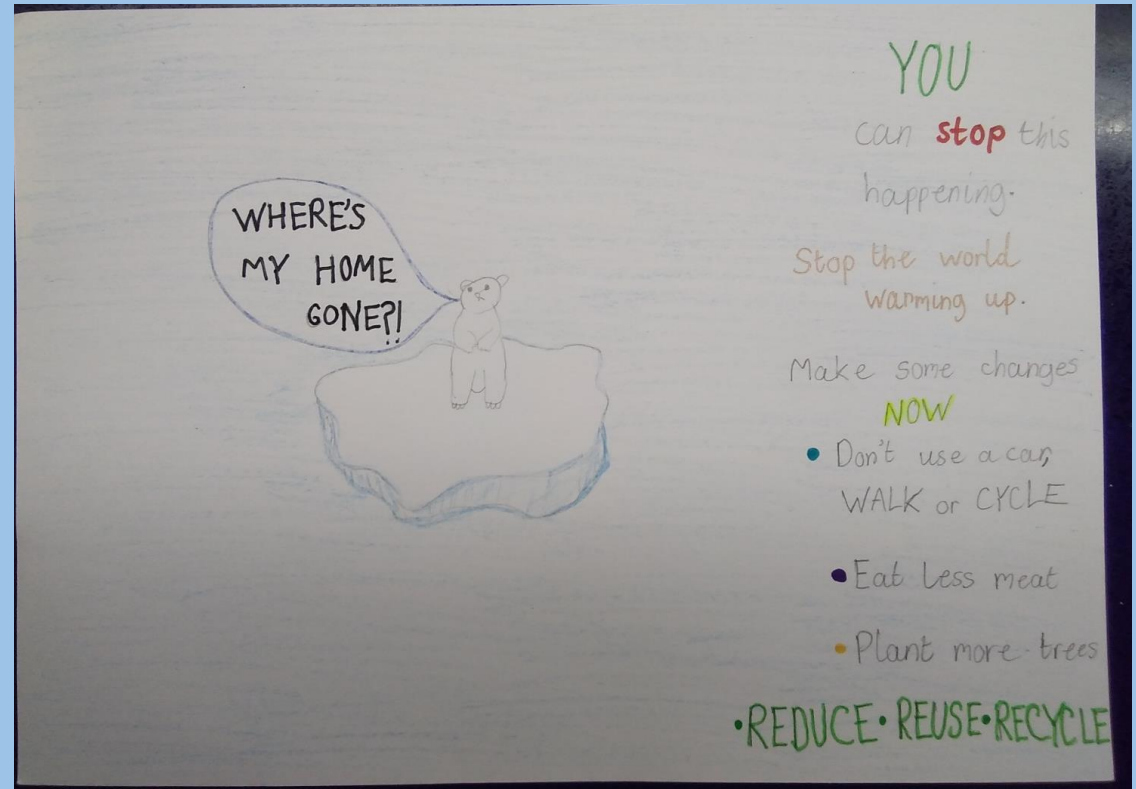 WHERE'S
MY HOME
GONE?!
YOU
can stop this
happening.
Stop the world
warming up.
Make some changes
NOW
• Don't use a car,
WALK or CYCLE
• Eat less meat
• Plant more trees
•REDUCE• REUSE•RECYCLE